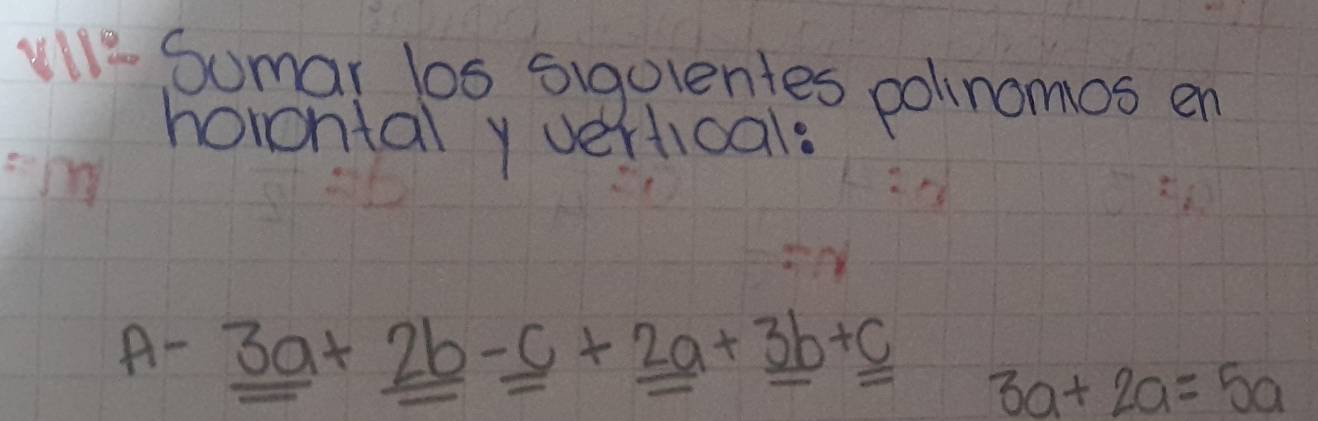 VII= Sumar los siguientes polinomios en
horontal y vertical:
A- 3a+ 2b-c + 2a+ 3b+c
3a+ 2a= 5a